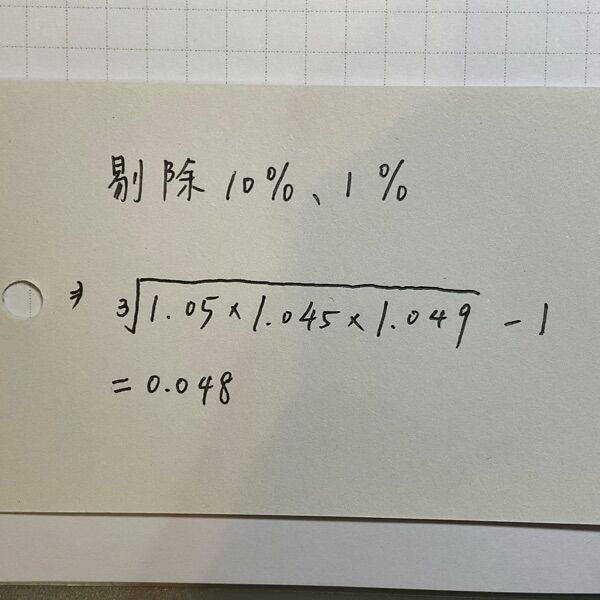 剔除10%、1%
⇒ ∛(1.05×1.045×1.049) - 1
= 0.048